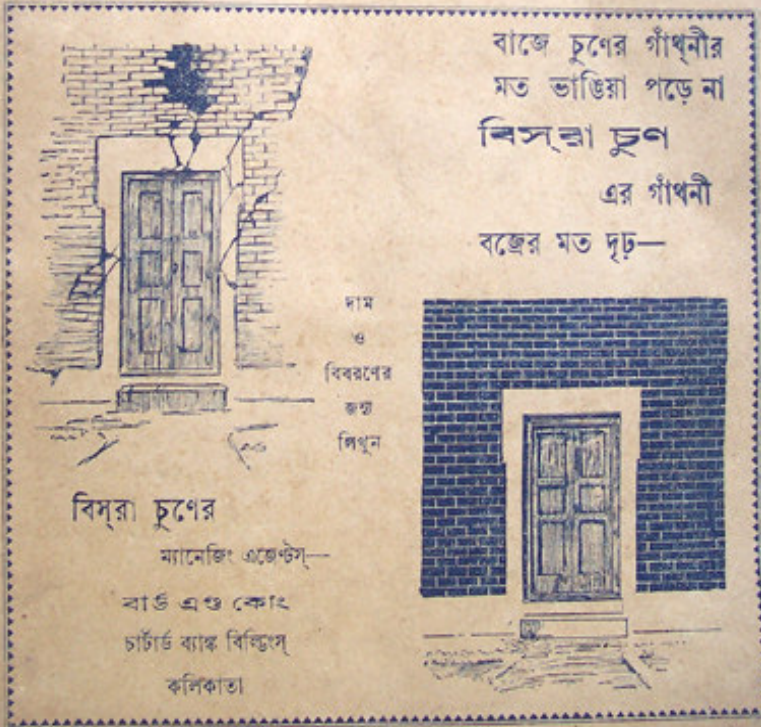 বাজে চুণের গাঁথ্নীর
মত ভাঙিয়া পড়ে না
বিস্রা চুণ
এর গাঁথনী
বজ্রের মত দৃঢ়—
দাম
ও
বিবরণের
জন্য
লিখুন
বিস্রা চুণের
ম্যানেজিং এজেণ্টস্—
বার্ড এণ্ড কোং
চার্টার্ড ব্যাঙ্ক বিল্ডিংস্
কলিকাতা